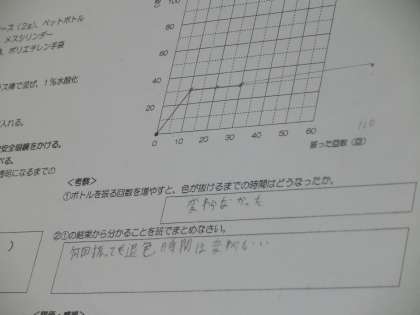 100
ース（2g）、ペットボトル
メスシリンダー
ポリエチレン手袋
80
60
ス棒で混ぜ、1％水酸化
40
入れる。
20
安全眼鏡をかける。
べる。
透明になるまでの
0 10 20 30 40 50 60
振った回数（回）
110
＜考察＞
①ボトルを振る回数を増やすと、色が抜けるまでの時間はどうなったか。
変わらなかった
②①の結果から分かることを班でまとめなさい。
何回振っても退色時間は変わらない